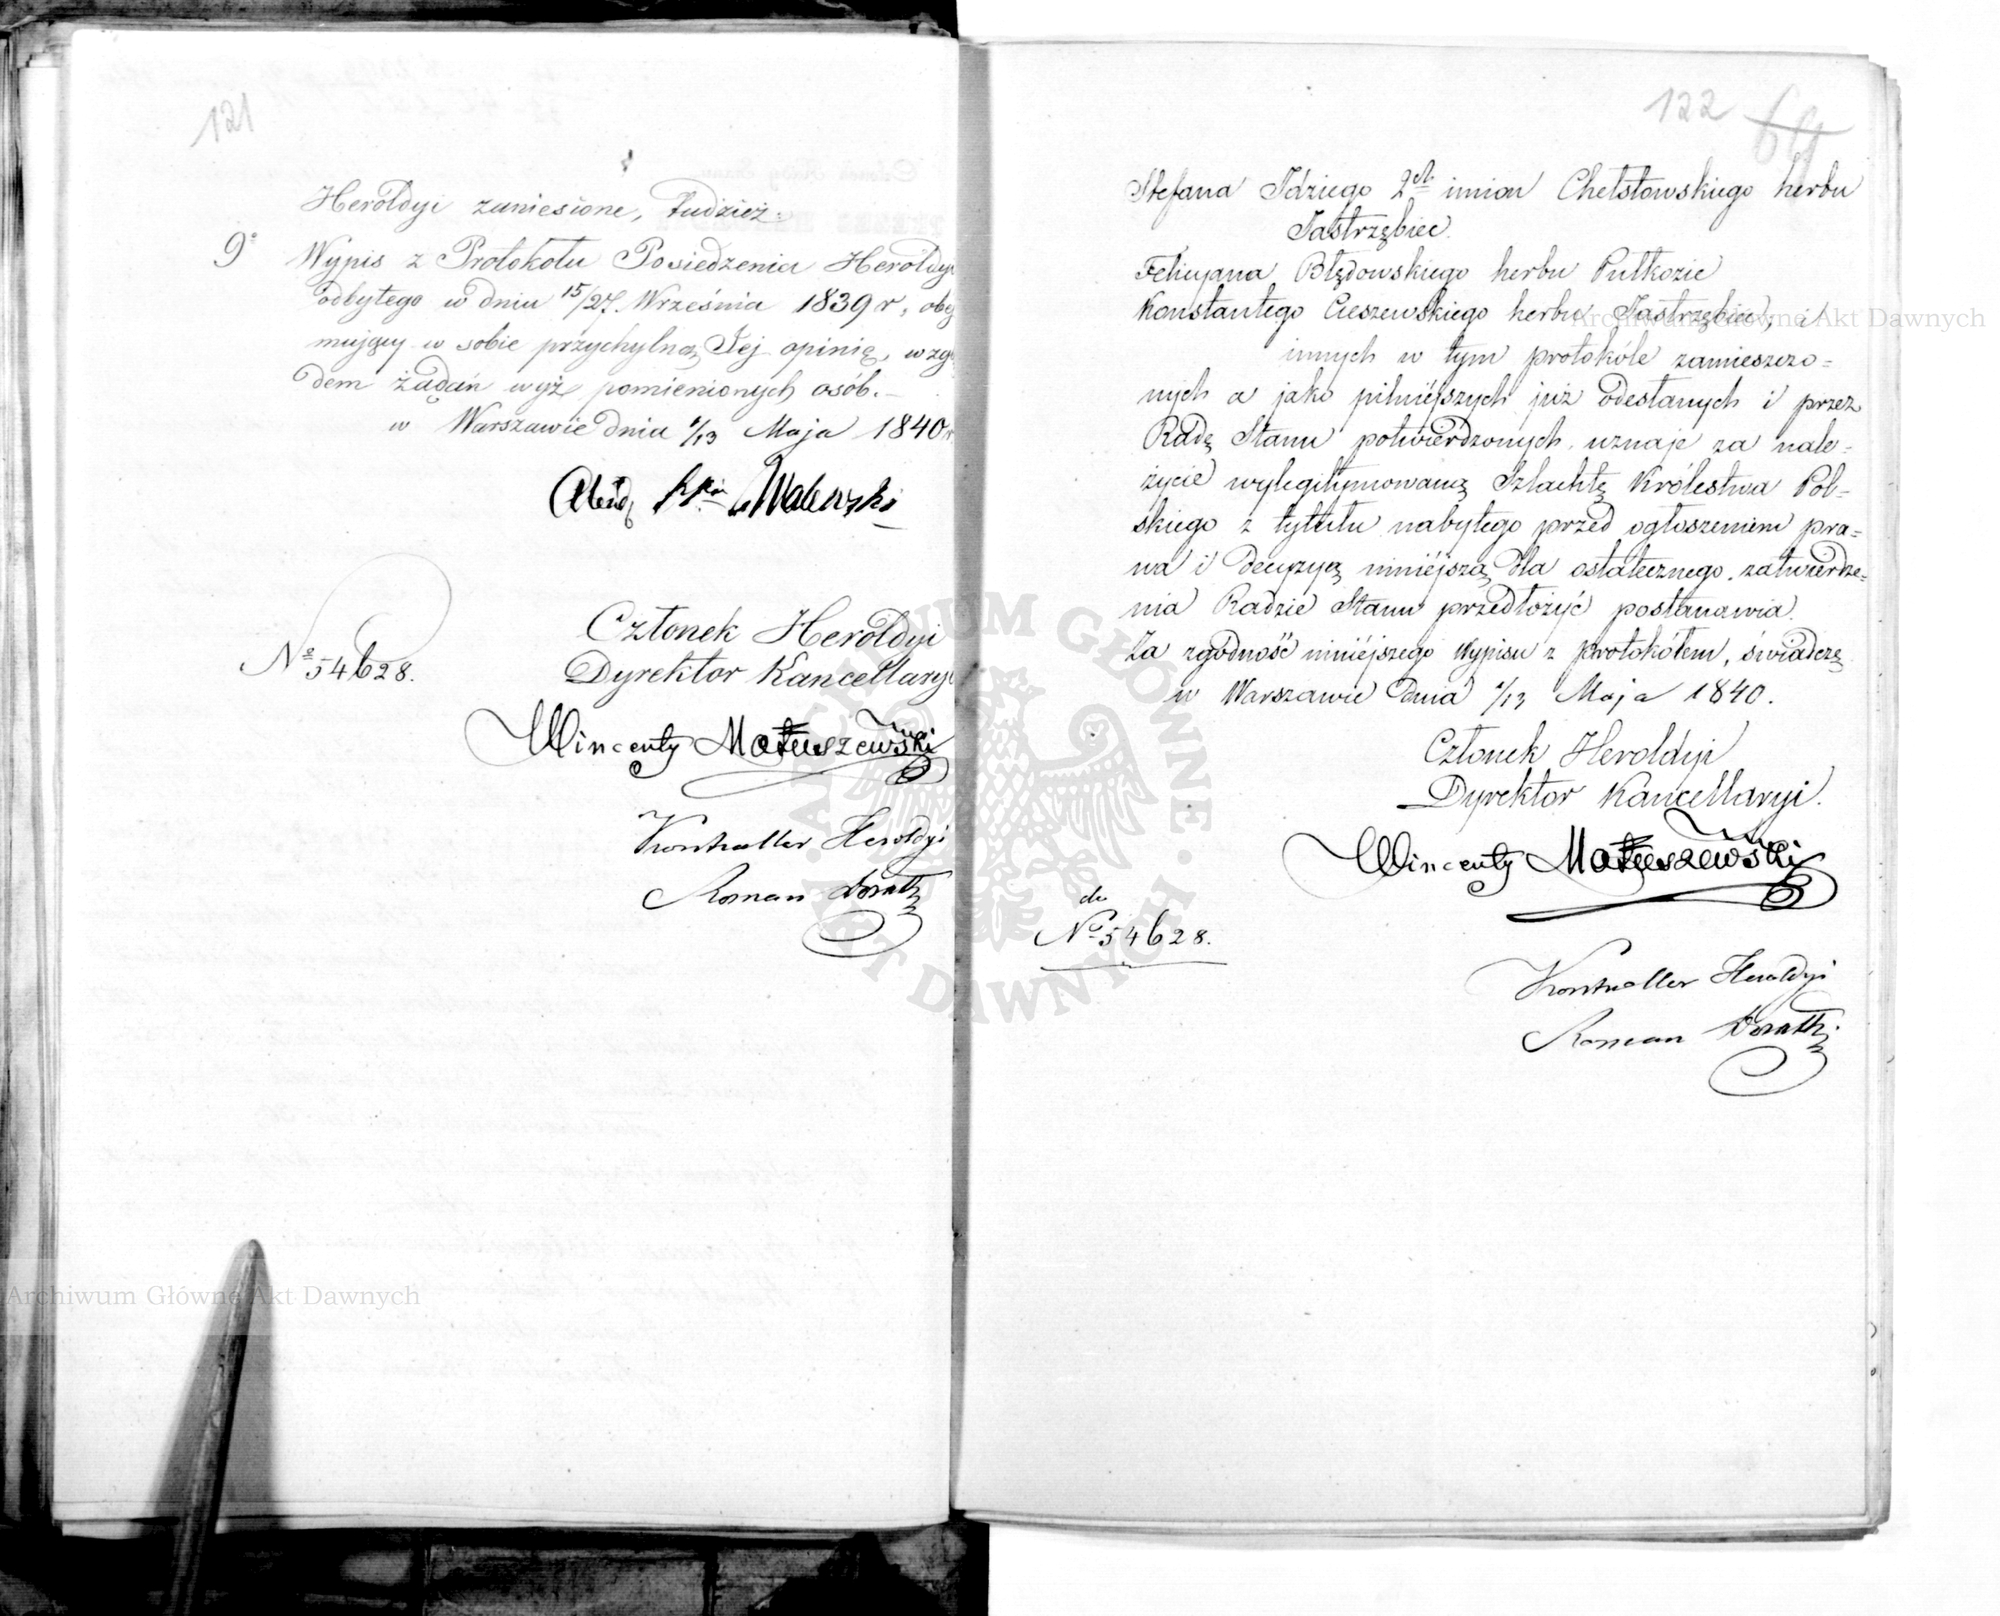 121
Heroldyi zaniesione, tudzież.
9º Wypis z Protokołu Posiedzenia Heroldyi
odbytego w dniu 15/27 Września 1839 r, obej
mujący w sobie przychylną Jej opinię, wzglę
dem żądań wyż pomienionych osób.
w Warszawie dnia 1/13 Maja 1840 r
Walewski
Członek Heroldyi
Nº 54628. Dyrektor Kancellaryi
Wincenty Matuszewski
Kontroller Heroldyi
Roman
122 64
Stefana Idziego 2ch imion Chełstowskiego herbu
Jastrzębiec.
Felicyana Błędowskiego herbu Pułkozic
Konstantego Cieszewskiego herbu Jastrzębiec, i
innych w tym protokóle zamieszczo=
nych a jako pilniejszych już odesłanych i przez
Radę Stanu potwierdzonych uznaje za nale=
życie wylegitymowaną Szlachtę Królestwa Pol=
skiego z tytułu nabytego przed ogłoszeniem pra=
wa i decyzyą niniéjszą dla ostatecznego zatwierdze=
nia Radzie Stanu przedłożyć postanawia.
Za zgodność niniéjszego wypisu z protokółem, świadczę
w Warszawie dnia 1/13 Maja 1840.
Członek Heroldyi
Dyrektor Kancellaryi.
Wincenty Matuszewski
do
Nº 54628.
Kontroller Heroldyi
Roman
ARCHIWUM GŁÓWNE AKT DAWNYCH
Archiwum Główne Akt Dawnych
Archiwum Główne Akt Dawnych